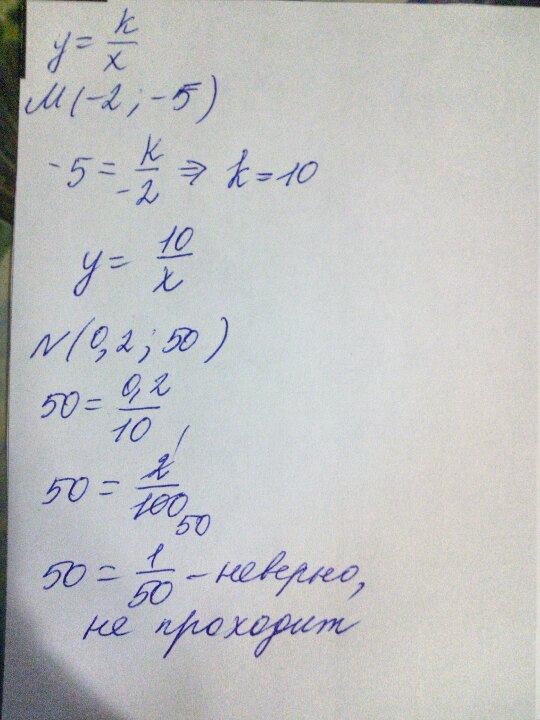 y = k/x
M(-2; -5)
-5 = k/-2 ⇒ k = 10
y = 10/x
N(0,2; 50)
50 = 0,2/10
50 = 2/100 1 50
50 = 1/50 - неверно,
не проходит